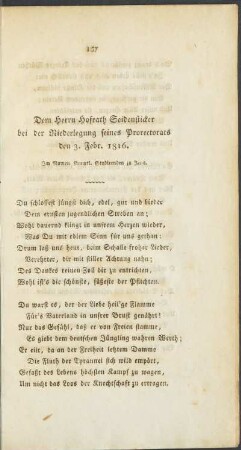 137
Dem Herrn Hofrath Seidensticker
bei der Niederlegung seines Prorectorats
den 3. Febr. 1816.
Im Namen sämmtl. Studirenden zu Jena.
Du schlossest jüngst dich, edel, gut und bieder
Dem ernsten jugendlichen Streben an;
Wohl dauernd klingt in unserm Herzen wieder,
Was Du mit edlem Sinn für uns gethan:
Drum laß uns heut, beim Schalle froher Lieder,
Verehrter, dir mit stiller Achtung nahn;
Des Dankes reinen Zoll dir zu entrichten,
Wohl ist's die schönste, süßeste der Pflichten.
Du warst es, der der Liebe heil'ge Flamme
Für's Vaterland in unsrer Brust genährt!
Nur das Gefühl, daß er von Freien stamme,
Es giebt dem deutschen Jüngling wahren Werth;
Er eilt, da an der Freiheit lehntem Damme
Die Fluth der Tyrannei sich wild empört,
Gefaßt des Lebens höchsten Kampf zu wagen,
Um nicht das Loos der Knechtschaft zu ertragen.